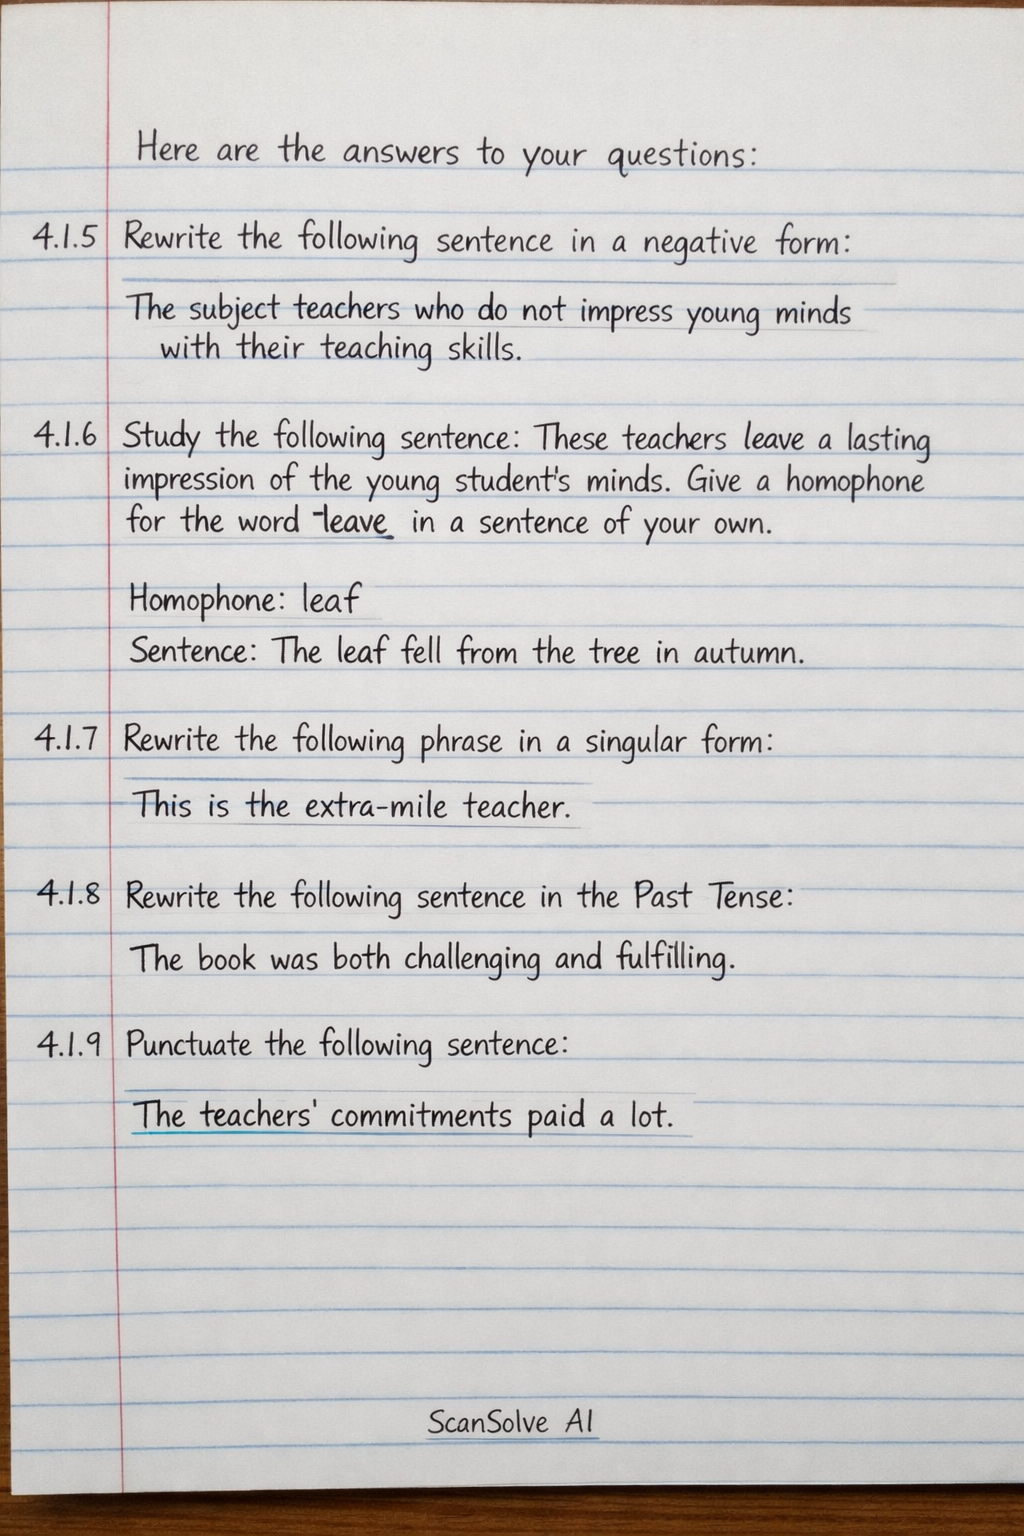 Here are the answers to your questions:
4.1.5 Rewrite the following sentence in a negative form:
The subject teachers who do not impress young minds
with their teaching skills.
4.1.6 Study the following sentence: These teachers leave a lasting
impression of the young student's minds. Give a homophone
for the word leave in a sentence of your own.
Homophone: leaf
Sentence: The leaf fell from the tree in autumn.
4.1.7 Rewrite the following phrase in a singular form:
This is the extra-mile teacher.
4.1.8 Rewrite the following sentence in the Past Tense:
The book was both challenging and fulfilling.
4.1.9 Punctuate the following sentence:
The teachers' commitments paid a lot.
ScanSolve AI